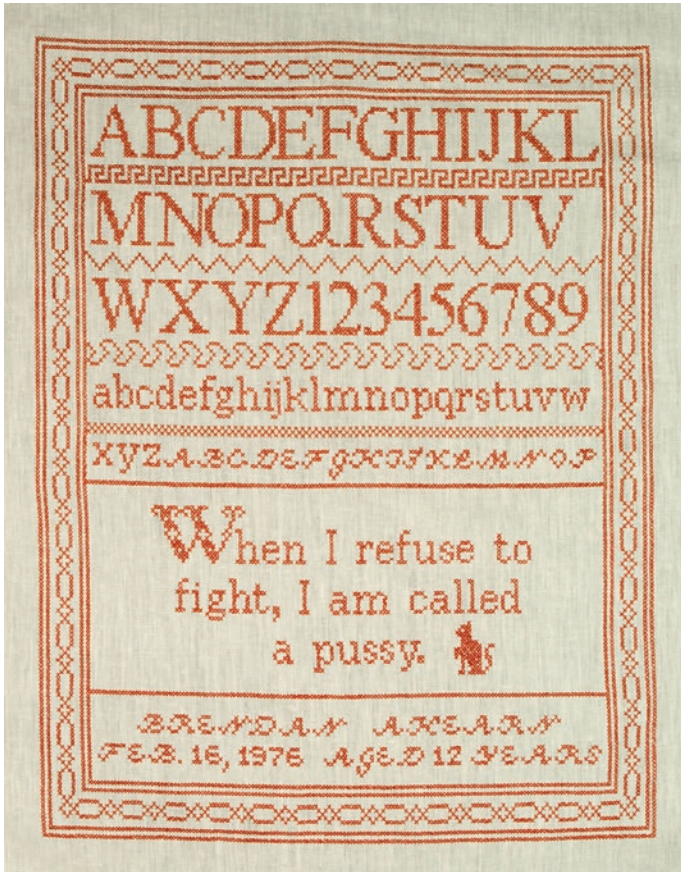 ABCDEFGHIJKL
MNOPQRSTUV
WXYZ123456789
abcdefghijklmnopqrstuvw
xyzABCDEFGHIJKLMNOP
When I refuse to
fight, I am called
a pussy.
BRENDAN AHEARN
FEB. 16, 1976 AGED 12 YEARS